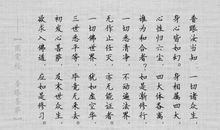 普眼汝当知 一切诸众生
身心皆如幻 身相属四大
心性归六尘 四大体各离
谁为和合者 如是渐修行
一切悉清净 不动遍法界
无作止任灭 亦无能证者
一切佛世界 犹如虚空华
三世悉平等 毕竟无来去
初发心菩萨 及末世众生
欲求入佛道 应如是修习